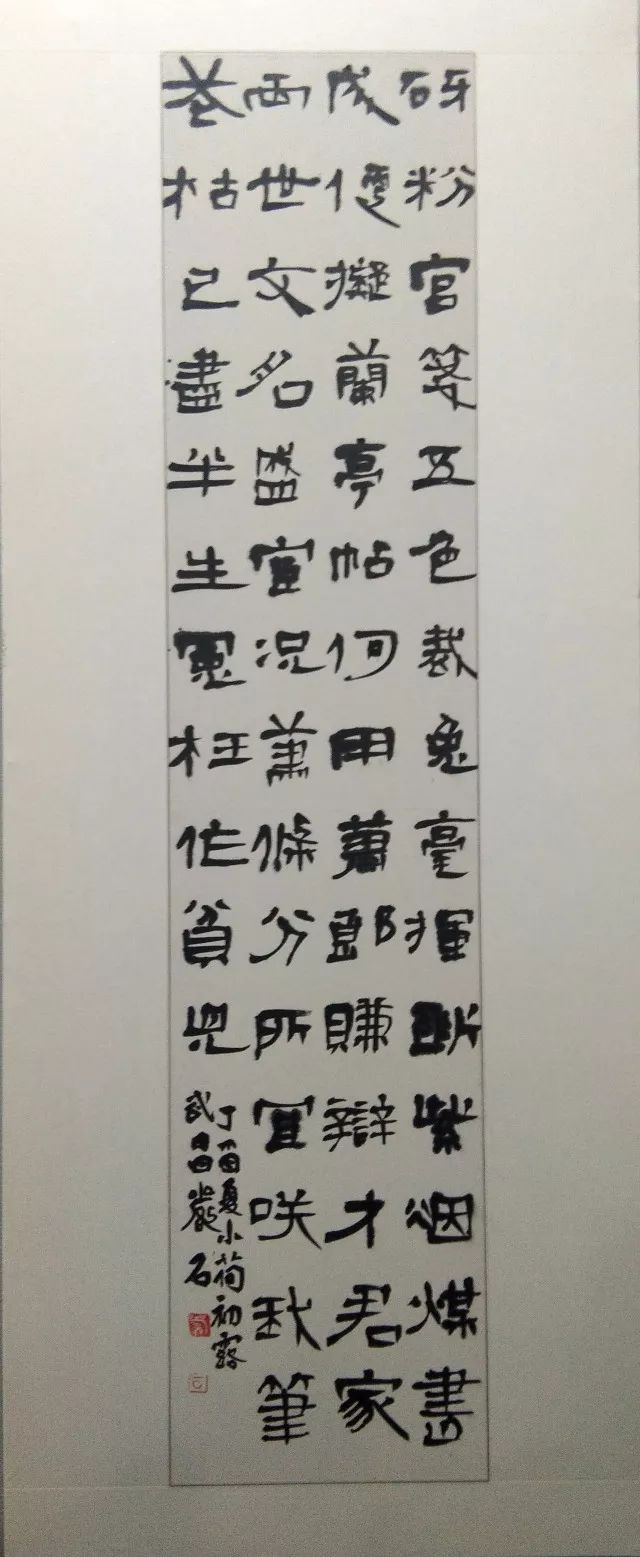 砑粉宮箋五色裁兔毫揮斷紫烟煤書
成便擬蘭亭帖何用蕭郎賺辯才君家
兩世文名盛宦況蕭條分所宜咲我筆
花枯已盡半生冤枉作貧兒
丁酉夏小荷初露
武昌嚴石